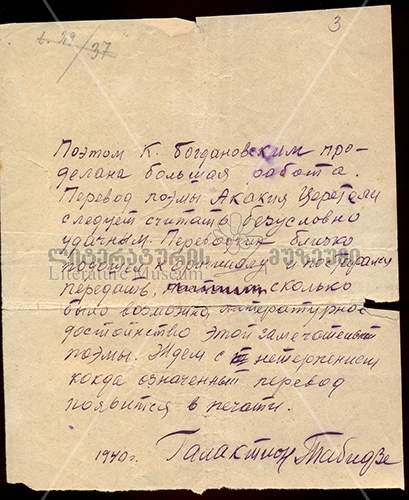 3
t. 29/37
Поэтом К. Богдановским про-
делана большая работа.
Перевод поэмы Акакия Церетели
следует считать безусловно
удачным. Переводчик близко
ლიტერატურის მუზეუმი
Literature Museum
подошел к оригиналу и постарался
передать, сколько
было возможно, литературное
достоинство этой замечательной
поэмы. Ждем с нетерпением
когда означенный перевод
появится в печати.
1940 г. Галактион Табидзе